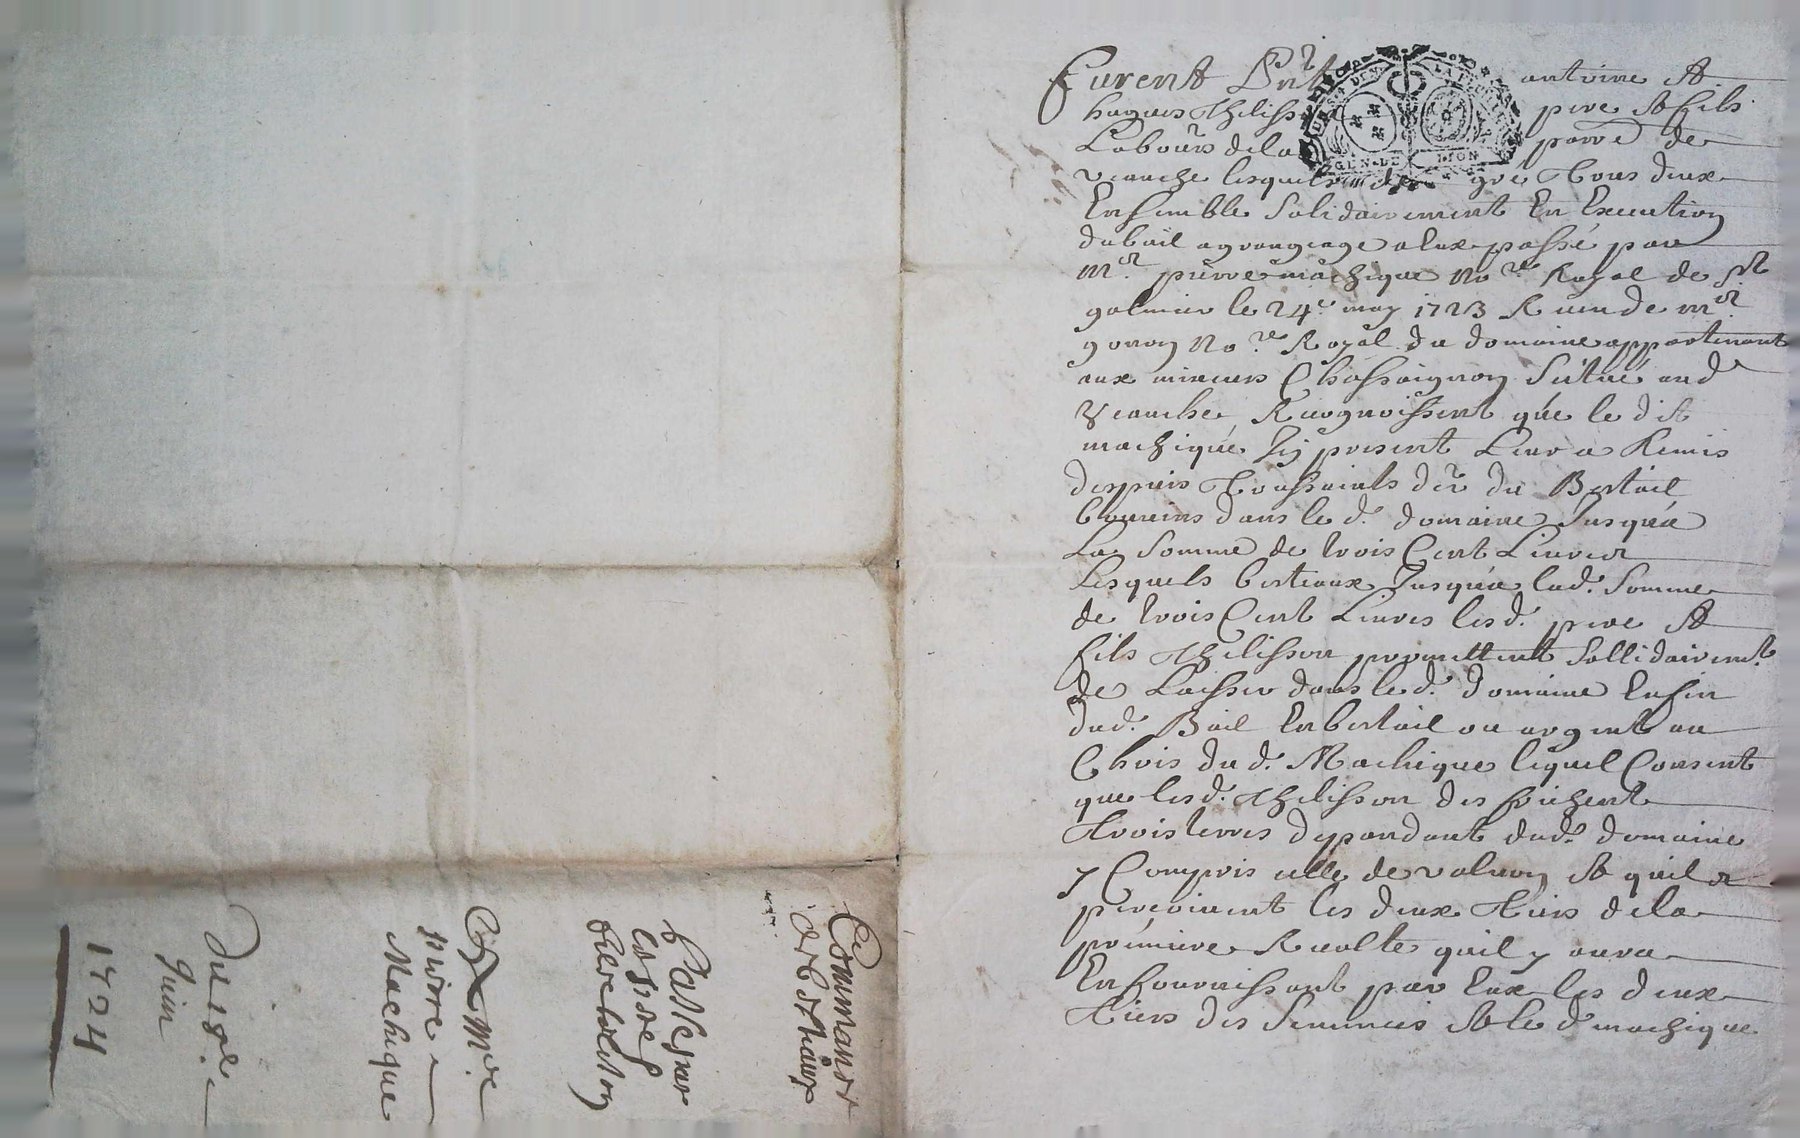 furent pnt antoine et
hugues thelisson pere et fils
Labours de la parre de
veauche lesquels de gré tous deux
Ensemble solidairement En Execution
du bail agrangeage a Eux passé par
Mr. pierre machique No.re Royal de st
galmier le 24e. may 1723 Receu de mr.
goron No.re Royal du domaine appartenant
aux mineurs Chassaignon situé aud
Veauche Recognoissent que le dit
machique Icy present Leur a Remis
despuis toussaints der du Bestail
dans le d. domaine Jusqu'a
La somme de trois Cent Liuvres
Lesquels bestiaux Jusqu'a lad. somme
de trois Cent Liuvres lesd. pere et
fils thelisson promettent sollidairemt.
de Laisser dans led. domaine Enfin
dud. Bail En bestail ou argent au
Chois du d. Machique lequel Consent
que lesd. thelisson desfrichent
trois terres dependant dud. domaine
y Compris celle de et quil
percoivent les deux tiers de la
premiere Recolte quil y aura
En fournissant par Eux les deux
tiers des semences et le d machique
Command
de bestiaux
passé par
Mre
pierre
Machique
Du 18e.
Juin
1724